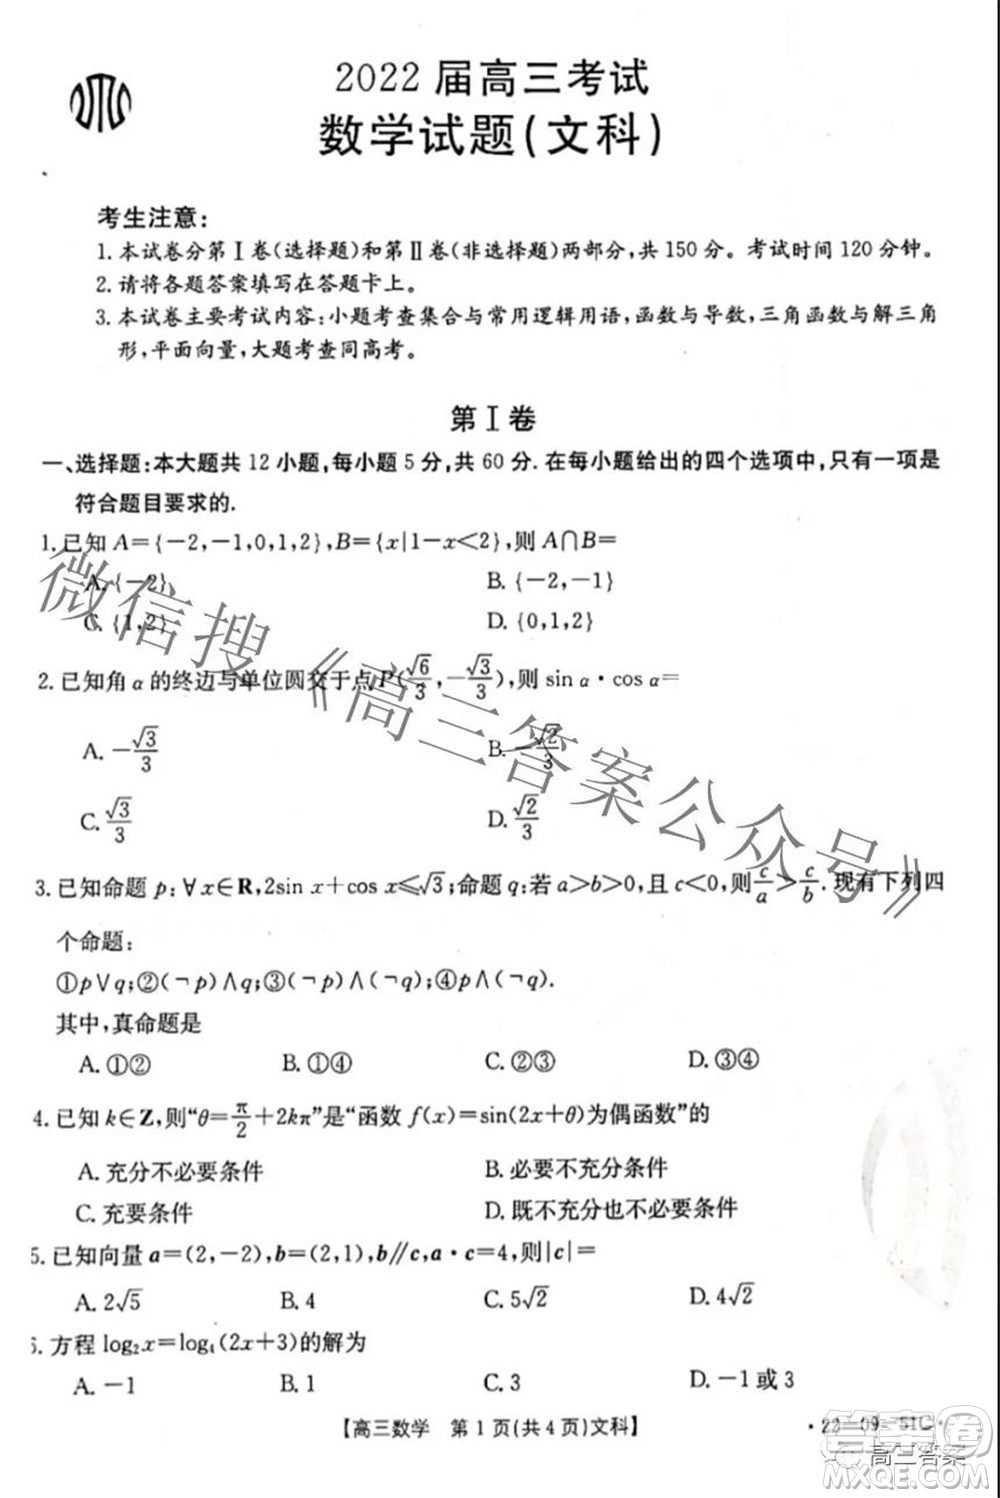 2022 届高三考试
数学试题(文科)
考生注意:
1. 本试卷分第Ⅰ卷(选择题)和第Ⅱ卷(非选择题)两部分,共 150 分。考试时间 120 分钟。
2. 请将各题答案填写在答题卡上。
3. 本试卷主要考试内容:小题考查集合与常用逻辑用语,函数与导数,三角函数与解三角
形,平面向量,大题考查同高考。
第Ⅰ卷
一、选择题:本大题共 12 小题,每小题 5 分,共 60 分. 在每小题给出的四个选项中,只有一项是
符合题目要求的.
1. 已知 A={-2,-1,0,1,2},B={x|1-x<2},则 A∩B=
A. {-2} B. {-2,-1}
C. {1,2} D. {0,1,2}
2. 已知角 α 的终边与单位圆交于点 P(√6/3,-√3/3),则 sin α·cos α=
A. -√3/3 B. -√2/3
C. √3/3 D. √2/3
3. 已知命题 p:∀x∈R,2sin x+cos x≤√3;命题 q:若 a>b>0,且 c<0,则 c/a>c/b. 现有下列四
个命题:
①p∨q;②(¬p)∧q;③(¬p)∧(¬q);④p∧(¬q).
其中,真命题是
A. ①② B. ①④ C. ②③ D. ③④
4. 已知 k∈Z,则“θ=π/2+2kπ”是“函数 f(x)=sin(2x+θ)为偶函数”的
A. 充分不必要条件 B. 必要不充分条件
C. 充要条件 D. 既不充分也不必要条件
5. 已知向量 a=(2,-2),b=(2,1),b∥c,a·c=4,则|c|=
A. 2√5 B. 4 C. 5√2 D. 4√2
6. 方程 log₂x=log₄(2x+3)的解为
A. -1 B. 1 C. 3 D. -1 或 3
【高三数学 第 1 页(共 4 页)文科】
·22-09-51C·
微信搜《高三答案公众号》
高三答案
答案圈
MXQE.COM